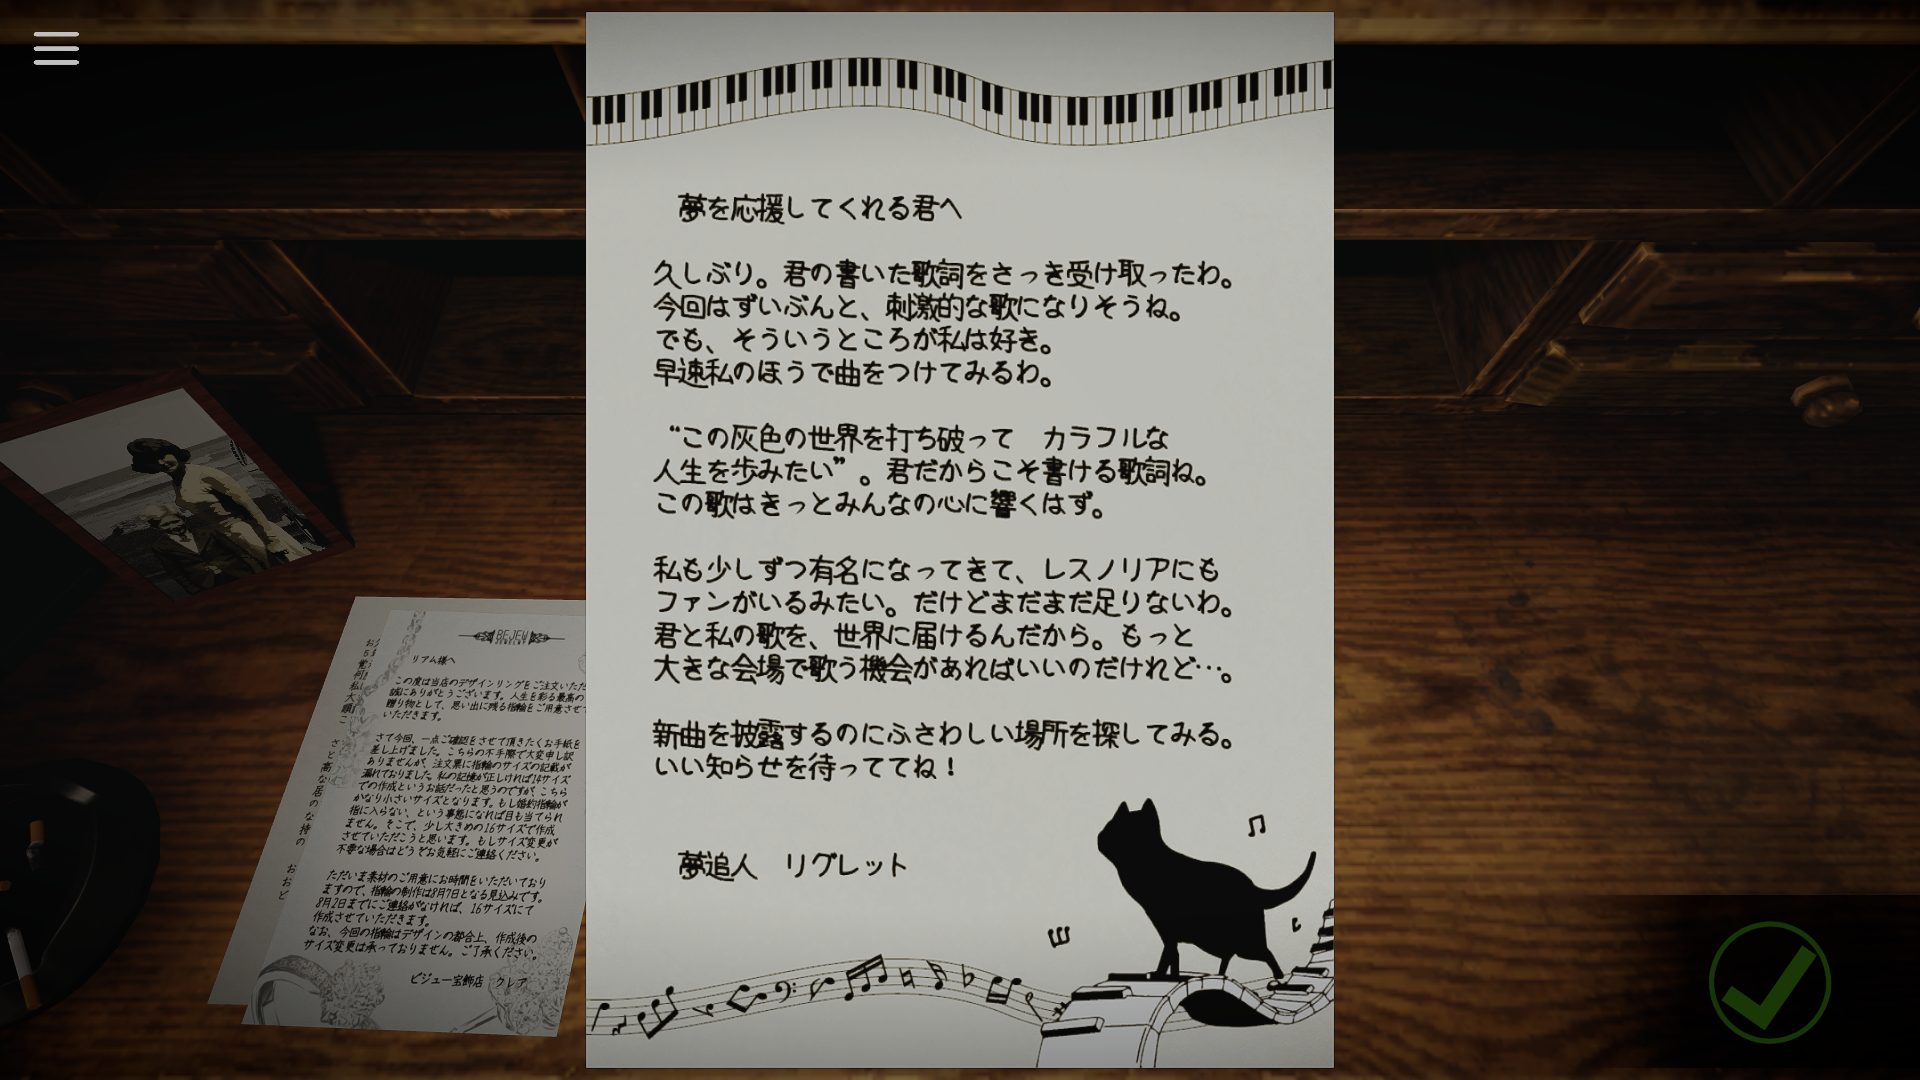 夢を応援してくれる君へ
久しぶり。君の書いた歌詞をさっき受け取ったわ。
今回はずいぶんと、刺激的な歌になりそうね。
でも、そういうところが私は好き。
早速私のほうで曲をつけてみるわ。
“この灰色の世界を打ち破って　カラフルな
人生を歩みたい”。君だからこそ書ける歌詞ね。
この歌はきっとみんなの心に響くはず。
私も少しずつ有名になってきて、レスノリアにも
ファンがいるみたい。だけどまだまだ足りないわ。
君と私の歌を、世界に届けるんだから。もっと
大きな会場で歌う機会があればいいのだけれど…。
新曲を披露するのにふさわしい場所を探してみる。
いい知らせを待っててね！
夢追人　リグレット
リアム様へ
この度は当店のデザインリングをご注文いただ
誠にありがとうございます。人生を彩る最高の
贈り物として、思い出に残る指輪をご用意させて
いただきます。
さて今回、一点ご確認をさせて頂きたくお手紙を
差し上げました。こちらの不手際で大変申し訳
ありませんが、注文票に指輪のサイズの記載が
漏れておりました。私の記憶が正しければ14サイズ
での作成というお話だったと思うのですが、こちら
かなり小さいサイズとなります。もし婚約指輪が
指に入らない、という事態になれば目も当てられ
ません。そこで、少し大きめの16サイズで作成
させていただこうと思います。もしサイズ変更が
不要な場合はどうぞお気軽にご連絡ください。
ただいま素材のご用意にお時間をいただいており
ますので、指輪の制作は8月7日となる見込みです。
8月2日までにご連絡がなければ、16サイズにて
作成させていただきます。
なお、今回の指輪はデザインの都合上、作成後の
サイズ変更は承っておりません。ご了承ください。
ビジュー宝飾店　クレア